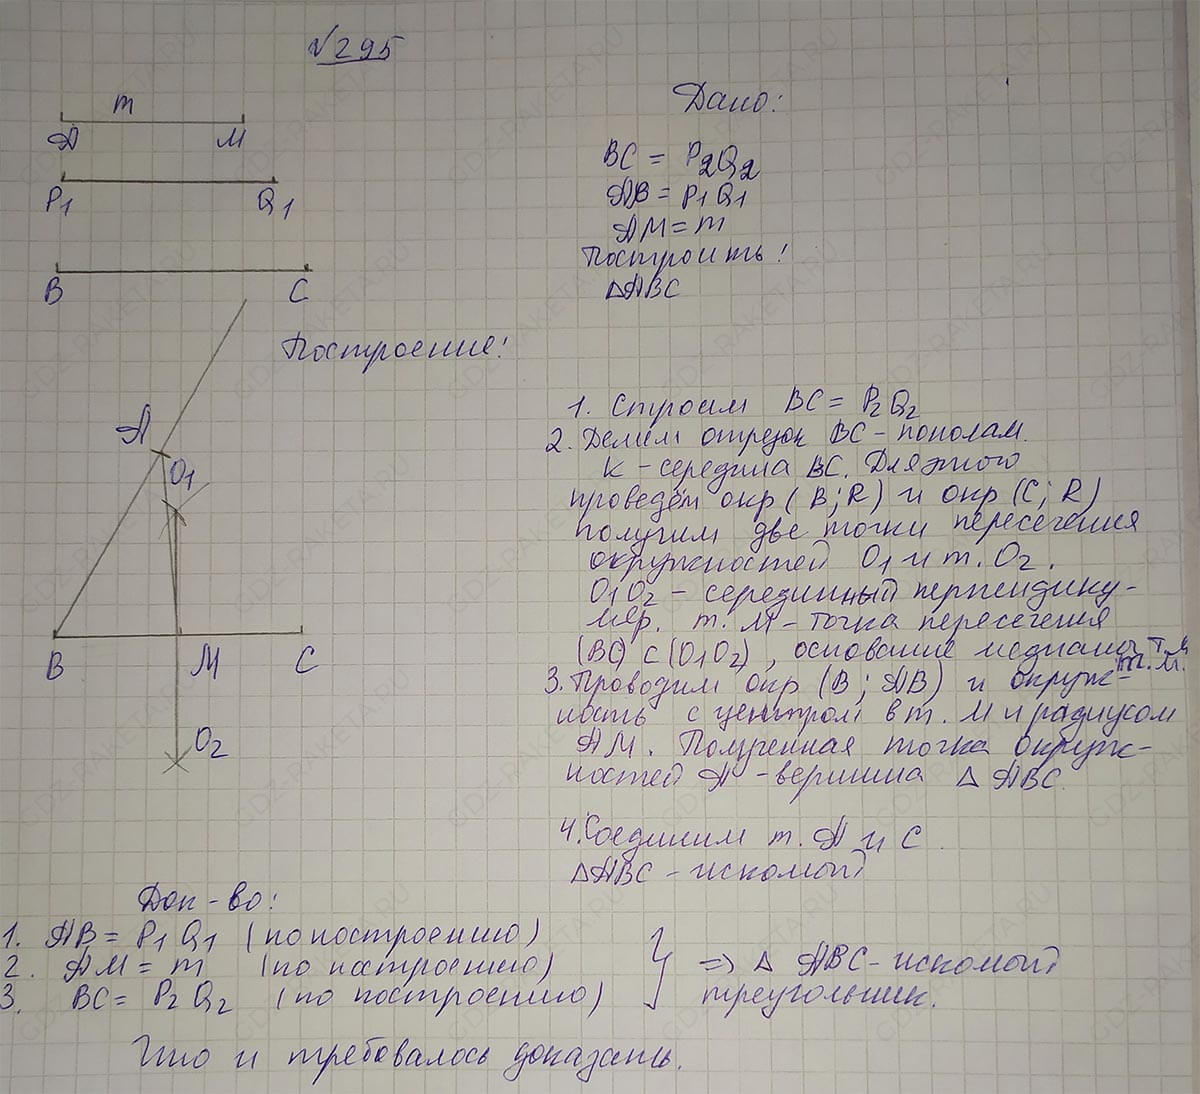 №295
m
A M
P1 Q1
B C
Дано:
BC = P2Q2
AB = P1Q1
AM = m
Построить:
△ABC
Построение:
A
O1
B M C
O2
1. Строим BC = P2Q2
2. Делим отрезок BC - пополам.
K - середина BC. Для этого
проведём окр (B; R) и окр (C; R)
получим две точки пересечения
окружностей O1 и т. O2.
O1O2 - серединный перпендику-
ляр. т. M - точка пересечения
(BC) с (O1O2), основание медианы т. M
т. M.
3. Проводим окр (B; AB) и окруж-
ность с центром в т. M и радиусом
AM. Полученная точка окруж-
ностей A - вершина △ ABC.
4. Соединим т. A и C.
△ABC - искомый
Док-во:
1. AB = P1Q1 (по построению)
2. AM = m (по построению)
3. BC = P2Q2 (по построению)
=> △ ABC - искомый
треугольник.
Что и требовалось доказать.
GDZ-RAKETA.RU